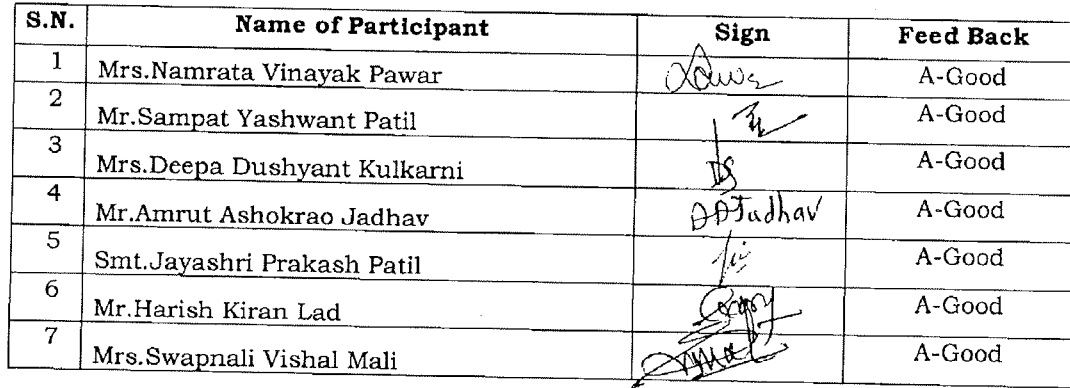 S.N. Name of Participant Sign Feed Back
1 Mrs.Namrata Vinayak Pawar A-Good
2 Mr.Sampat Yashwant Patil A-Good
3 Mrs.Deepa Dushyant Kulkarni A-Good
4 Mr.Amrut Ashokrao Jadhav AAJadhav A-Good
5 Smt.Jayashri Prakash Patil A-Good
6 Mr.Harish Kiran Lad A-Good
7 Mrs.Swapnali Vishal Mali A-Good